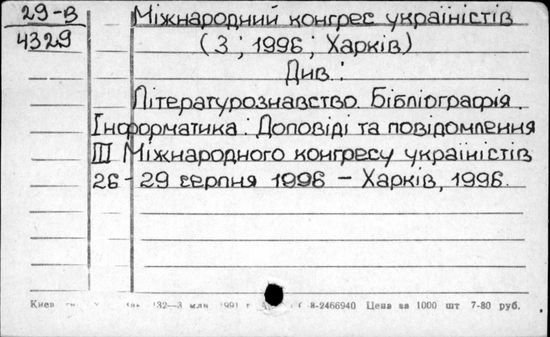 29-В
4329
Міжнародний конгрес україністів
(3 ; 1996 ; Харків)
Див. :
Літературознавство. Бібліографія.
Інформатика : Доповіді та повідомлення
III Міжнародного конгресу україністів
26 - 29 серпня 1996 - Харків, 1996.
Киев 132—3 млн 1991 г 8-2466940 Цена за 1000 шт 7-80 руб.